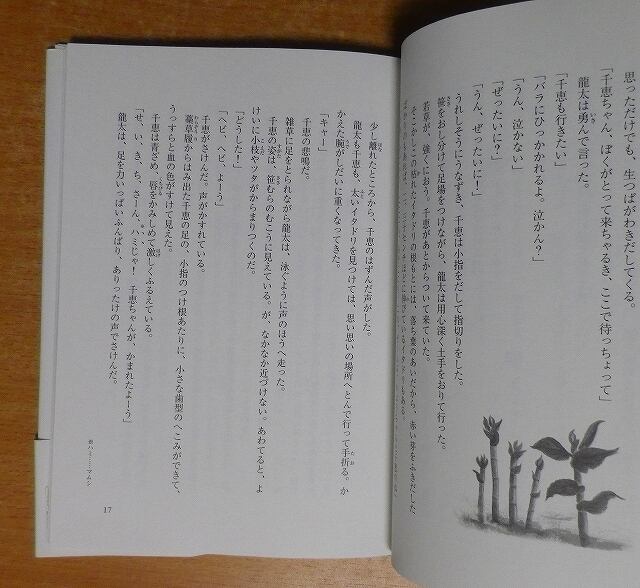 思っただけでも、生つばがわきだしてくる。
「千恵ちゃん、ぼくがとって来ちゃるき、ここで待っちょって」
龍太は勇んで言った。
「千恵も行きたい」
「バラにひっかかれるよ。泣かん?」
「うん、泣かない」
「ぜったいに?」
「うん、ぜったいに!」
うれしそうにうなずき、千恵は小指をだして指切りをした。
笹をおし分けて足場をつけながら、龍太は用心深く土手をおりて行った。
若草が、強くにおう。千恵があとからついて来ていた。
そこかしこの枯れたイタドリの根もとには、落ち葉のあいだから、赤い芽をふきだした
少し離れたところから、千恵のはずんだ声がした。
龍太も千恵も、太いイタドリを見つけては、思い思いの場所へとんで行って手折る。か
かえた腕がしだいに重くなってきた。
「キャー」
千恵の悲鳴だ。
雑草に足をとられながら龍太は、泳ぐように声のほうへ走った。
千恵の姿は、笹むらのむこうに見えている。が、なかなか近づけない。あわてると、よ
けいに小枝やツタがからまりつくのだ。
「どうした!」
「ヘビ、ヘビ、よーう」
千恵がさけんだ。声がかすれている。
藁草履からはみ出た千恵の足の、小指のつけ根あたりに、小さな歯型のへこみができて、
うっすらと血の色がすけて見えた。
千恵は青ざめ、唇をかみしめて激しくふるえている。
「せ、い、き、ち、さーん。ハミじゃ! 千恵ちゃんが、かまれたよーう」
龍太は、足を力いっぱいふんばり、ありったけの声でさけんだ。
ハミ……マムシ
17